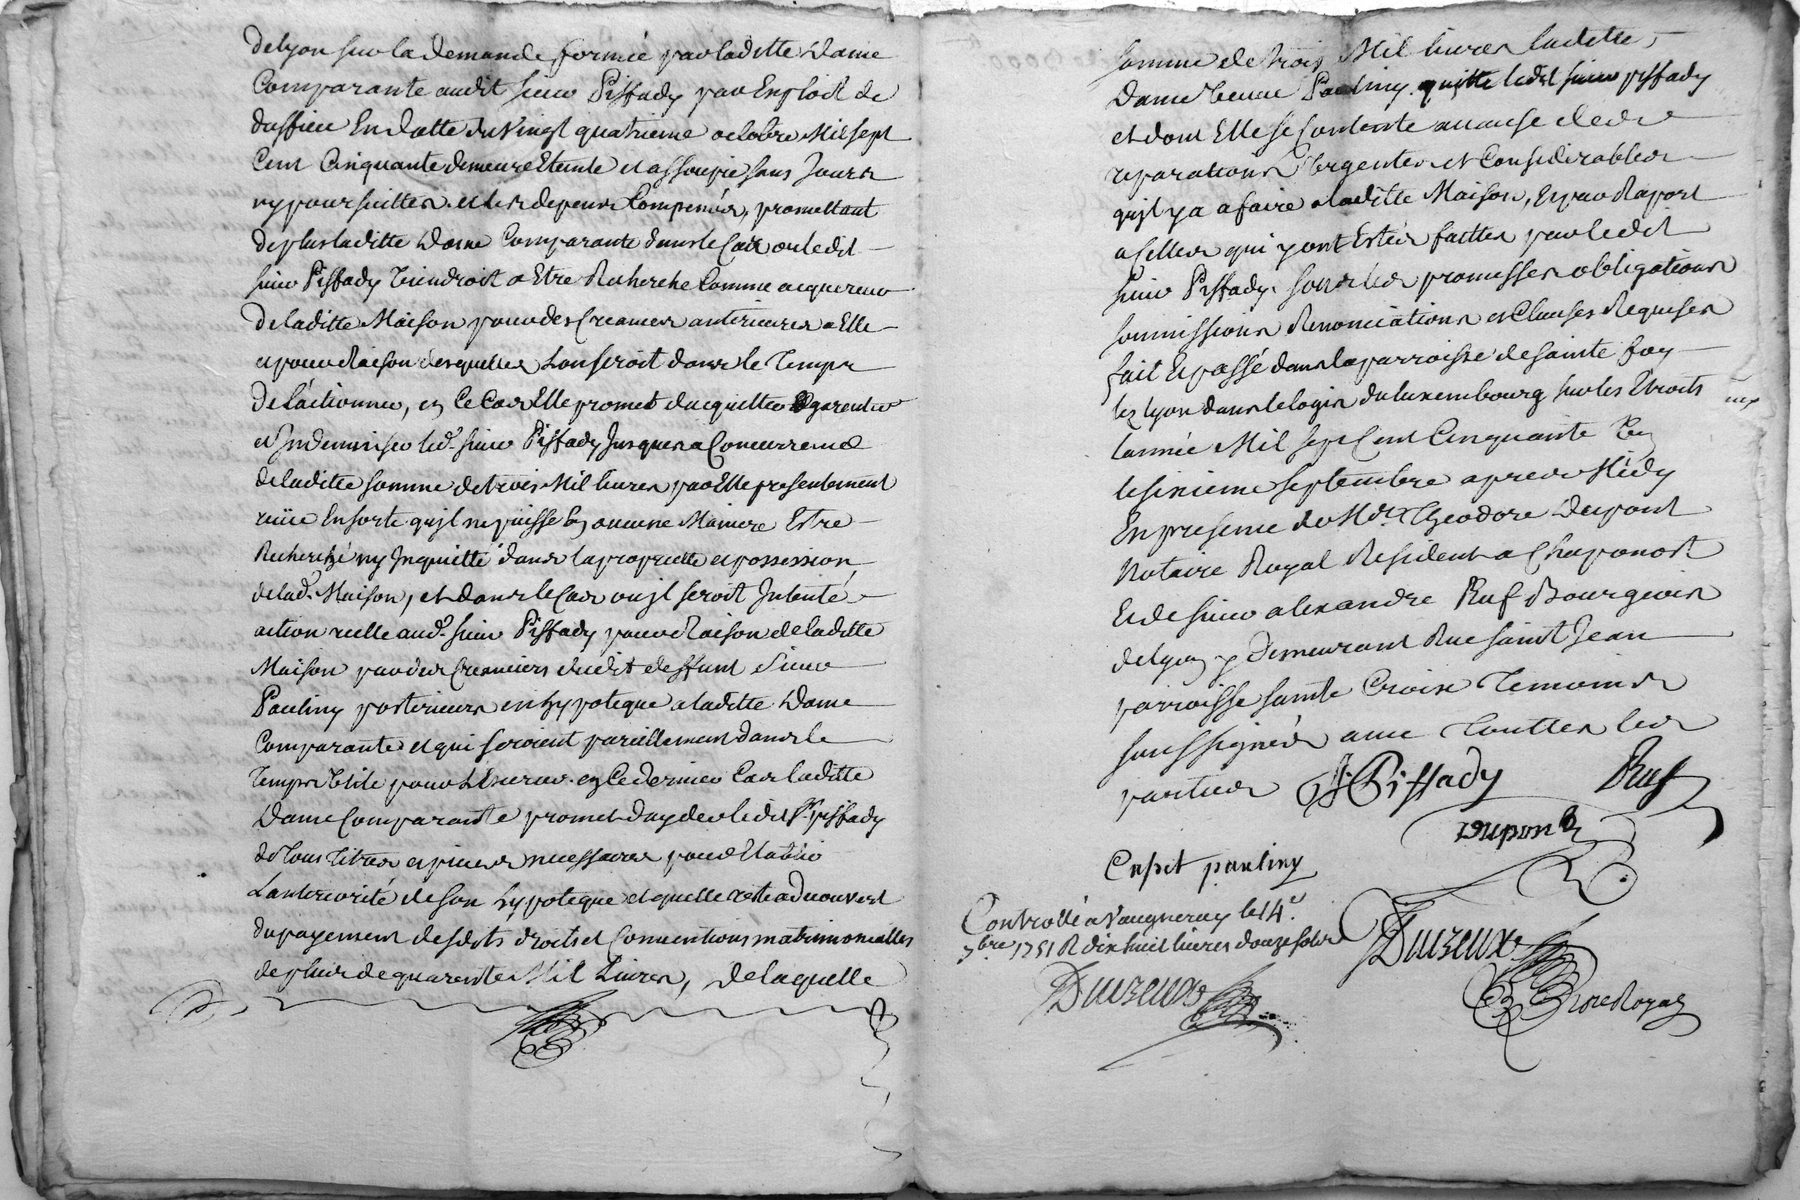 delyon sur la demande formée par laditte Dame
Comparante audit sieur Piffady par Exploit de
duffieu En datte du vingt quatrieme octobre Mil sept
Cent Cinquante demeure Eteinte et assoupie sans Jours
ny poursuittes et les depens Compensés, promettant
deplus laditte Dame Comparante dans le Cas ou ledit
sieur Piffady viendroit a Etre Recherché Comme acquereur
de laditte Maison pour des Creances anterieures a Elle
et pour Raison desquelles Lon seroit dans le Temps
de L'actionner, en Ce Cas Elle promet d'acquitter garentir
et Indemniser led. sieur Piffady Jusques a Concurrence
de laditte somme de trois Mil livres par Elle presentement
reçüe En sorte qu'jl ne puisse En aucune Maniere Estre
Recherché ny Jnquiétté dans la proprietté et possession
de lad. Maison, et dans le Cas ou jl seroit Jntenté
action réelle aud. sieur Piffady pour Raison de laditte
Maison par des Creanciers dudit deffunt sieur
Pauliny posterieurs en hypoteque a laditte Dame
Comparante et qui seroient pareillement dans le
Temps Utile pour L'Exercer en Ce dernier Cas laditte
Dame Comparante promet d'ayder ledit Sr. piffady
de Tous Titres et pieces necessaires pour Etablir
L'anteriorité de son hypoteque et quelle reste a decouvert
du payement de sesdits droits et Conventions matrimonialles
de plus de quarente Mil Livres, de laquelle
somme de trois Mil livres laditte
Dame veuve Pauliny quitte ledit sieur piffady
et dont Elle se Contente a cause des
reparations Urgentes et Considerables
qu'jl y a a faire a laditte Maison, Et par Raport
a Celles qui y ont Estés faittes par ledit
sieur Piffady. sous les promesses obligations
soumissions Renonciations et Clauses Requises
fait Et passé dans la parroisse de sainte foy
lez lyon dans le logis du luxembourg sur les Etroits
l'année Mil sept Cent Cinquante Un
le sixieme septembre apres Midy
En presence de Me. Theodore Dupont
Notaire Royal Resident a Chaponost
Et de sieur alexandre Ruf Bourgeois
de lyon y demeurant Rue saint Jean
parroisse sainte Croix Temoins
soussignés avec Touttes les
parties Piffady Ruf
Dupont
Cusset pauliny
Controllé a Vaugneray le 14e.
7bre 1751 R dix huit livres douze sols
Duizeux
Duizeux
Nore Royal